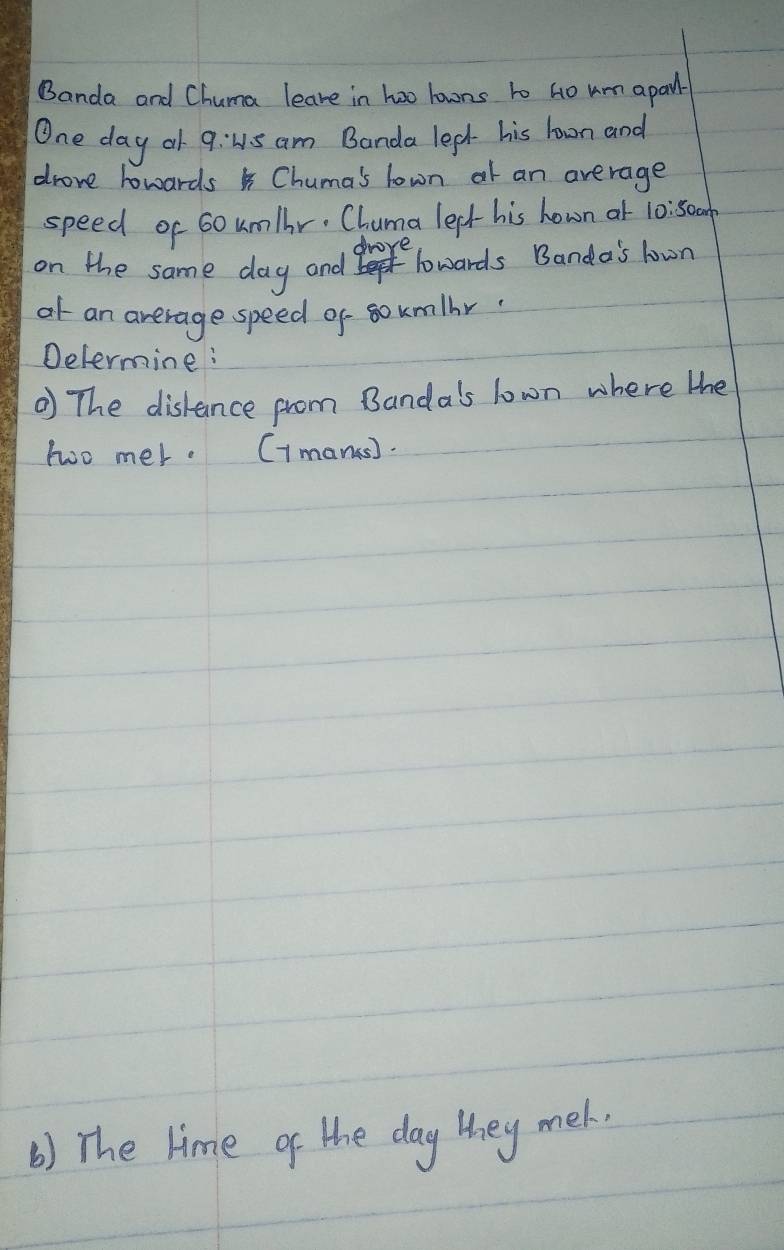 Banda and Chuma leave in two towns to 40 km apart
One day at 9:45 am Banda left his town and
drove towards Chuma's town at an average
speed of 60 km/hr. Chuma left his town at 10:50am
on the same day and drove towards Banda's town
at an average speed of 80 km/hr.
Determine:
a) The distance from Banda's town where the
two met. (7 marks).
b) The time of the day they met.